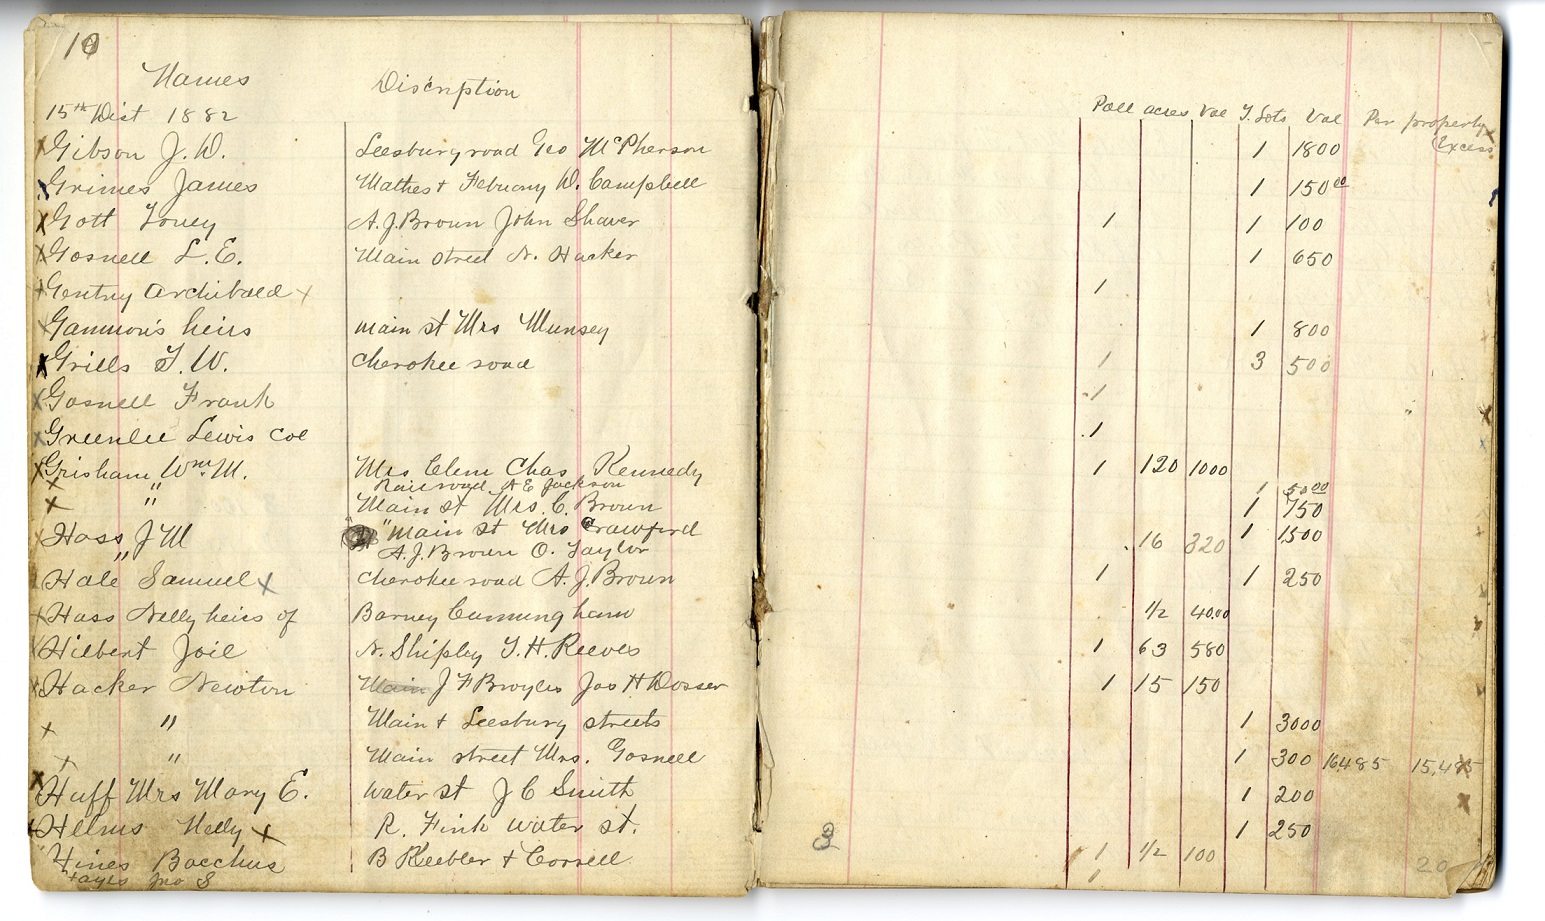 10
Names Discription
15th Dist 1882 Poll acres Val T. Lots Val Per property Excess
x Gibson J. W. Leesburg road Geo McPherson 1 1800
x Grimes James Mathes + Febuary W. Campbell 1 150 00
x Gott Toney A. J. Brown John Shaver 1 1 100
x Gosnell L. E. Main street N. Hacker 1 650
x Gentry Archibald x 1
x Gammon's heirs main st Mrs Munsey 1 800
x Grills T. W. Cherokee road 1 3 500
x Gosnell Frank 1
x Greenlee Lewis Col 1
x Grisham Wm. M. Mrs Clem Chas Kennedy 1 120 1000
x " Railroad A E Jackson 1 50 00
x " Main st Mrs. C. Brown 1 750
x Hoss J M " main st Mrs Crawford 1 1500
" A. J. Brown O. Taylor 16 320
Hale Samuel x Cherokee road A. J. Brown 1 1 250
x Hoss Nelly heirs of Barney Cunningham 1/2 40.00
x Hilbert Joil N. Shipley T. H. Reeves 1 63 580
x Hacker Newton Main J F Broyles Jas H Dosser 1 15 150
x " Main + Leesburg streets 1 3000
x " Main street Mrs. Gosnell 1 300 16,485 15,485
x Huff Mrs Mary E. Water st J C Smith 1 200
x Helms Nelly x R. Fink water st. 1 250
Hines Bacchus B Keebler + Correll 1 1/2 100
Hayes Jno S 1
3 20